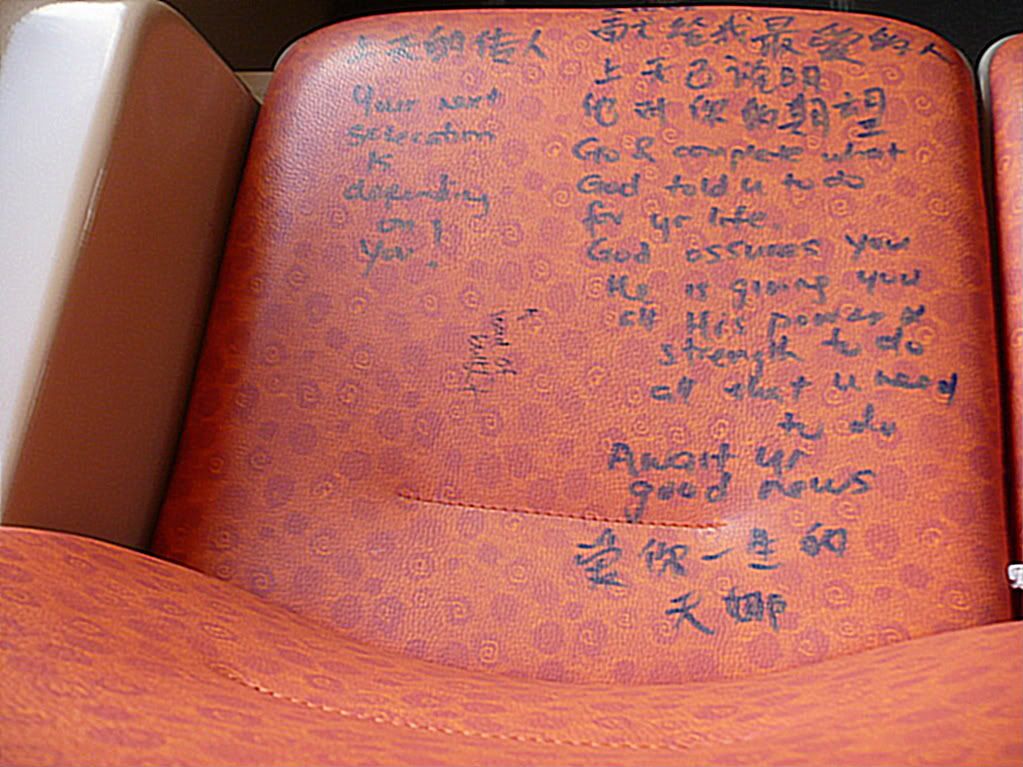 上天的传人
Your next
selecation
is
depending
on
you!
献给我最爱的人
上天已说明
他对你的期望
Go & complete what
God told u to do
for yr life.
God assures you
He is giving you
all His power &
strength to do
all that u need
to do
Await yr
good news
爱你一生的
天娜